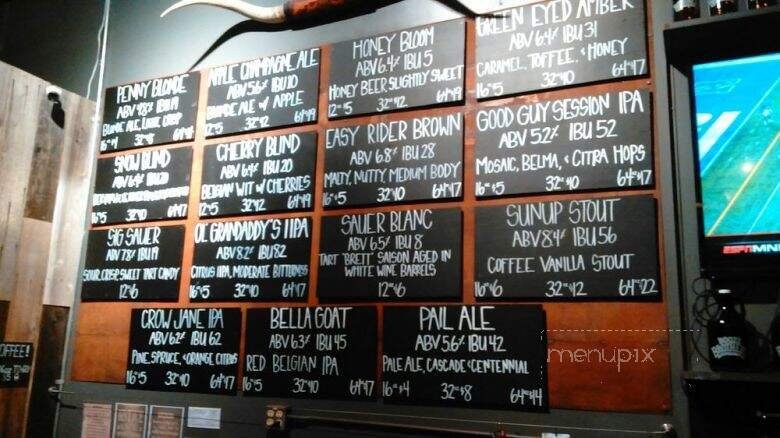 PENNY BLONDE
ABV 4.8% IBU 19
BLONDE ALE, LIGHT, CRISP
16oz $4 32oz $8
APPLE CHAMPAGNE ALE
ABV 5.6% IBU 10
BLONDE ALE w/ APPLE
12oz $5 32oz $12 64oz $19
HONEY BLOOM
ABV 6.4% IBU 5
HONEY BEER, SLIGHTLY SWEET
12oz $5 32oz $12 64oz $19
GREEN EYED AMBER
ABV 6.4% IBU 31
CARAMEL, TOFFEE, & HONEY
16oz $5 32oz $10 64oz $17
SNOW BLIND
ABV 6.4% IBU 20
16oz $5 32oz $10 64oz $17
CHERRY BLIND
ABV 6.4% IBU 20
BELGIAN WIT w/ CHERRIES
12oz $5 32oz $12 64oz $19
EASY RIDER BROWN
ABV 6.8% IBU 28
MALTY, NUTTY, MEDIUM BODY
16oz $5 32oz $10 64oz $17
GOOD GUY SESSION IPA
ABV 5.2% IBU 52
MOSAIC, BELMA, & CITRA HOPS
16oz $5 32oz $10 64oz $17
SIG SAUER
ABV 7.8% IBU 19
SOUR, CRISP, SWEET TART CANDY
12oz $6
OL' GRANDADDY'S IIPA
ABV 8.2% IBU 82
CITRUS IPA, MODERATE BITTERNESS
16oz $5 32oz $10 64oz $17
SAUER BLANC
ABV 6.5% IBU 8
TART "BRETT" SAISON AGED IN
WHITE WINE BARRELS
12oz $6
SUNUP STOUT
ABV 8.4% IBU 56
COFFEE VANILLA STOUT
16oz $6 32oz $12 64oz $22
CROW JANE IPA
ABV 6.2% IBU 62
PINE, SPRUCE, & ORANGE CITRUS
16oz $5 32oz $10 64oz $17
BELLA GOAT
ABV 6.3% IBU 45
RED BELGIAN IPA
16oz $5 32oz $10 64oz $17
PAIL ALE
ABV 5.6% IBU 42
PALE ALE, CASCADE & CENTENNIAL
16oz $4 32oz $8 64oz $14
menupix
OFFEE!